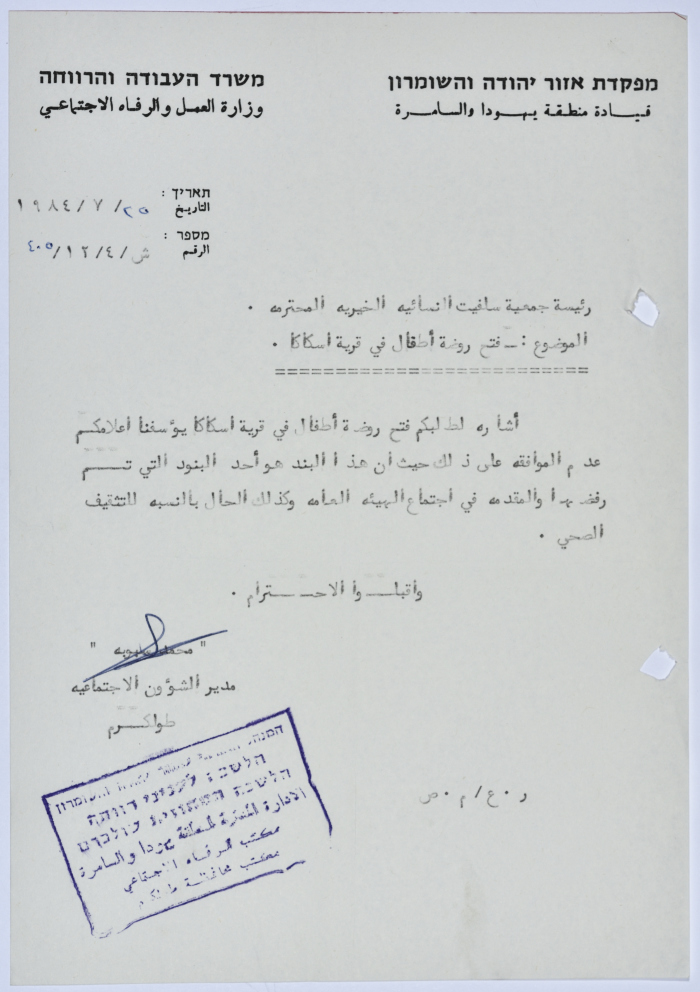 מפקדת אזור יהודה והשומרון
قيادة منطقة يهودا والسامرة
משרד העבודה והרווחה
وزارة العمل والرفاه الاجتماعي
תאריך :
التاريخ ٢٥/ ٧ / ١٩٨٤
מספר :
الرقم ش /٤/ ١٢/ ٤٠٥
رئيسة جمعية سلفيت النسائيه الخيريه المحترمه .
الموضوع : ــ فتح روضة أطفال في قرية أسكاكا .
===========================
أشاره لطلبكم فتح روضة أطفال في قرية أسكاكا يؤسفنا أعلامكم
عدم الموافقه على ذلك حيث أن هذا البند هو أحد البنود التي تم
رفضها والمقدمه في أجتماع الهيئه العامه وكذلك الحال بالنسبه للتثقيف
الصحي .
وأقبلوا الاحترام .
" محمد "
مدير الشؤون الاجتماعيه
طولكرم
ر.ع/م.ص
והשומרון
הלשכה לעניני רווחה
הלשכה המחוזית טולכרם
الادارة المدنية لمنطقة يهودا والسامرة
مكتب الرفاه الاجتماعي
مكتب محافظة طولكرم